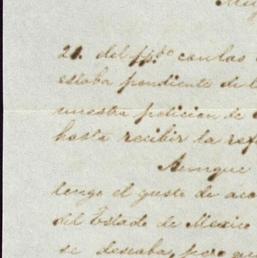 21. del pp.do con las
estaba pendiente de l
nuestra peticion de
hasta recibir la ref
Aunque
tengo el gusto de acc
del Estado de Mexico
se deseaba, pero